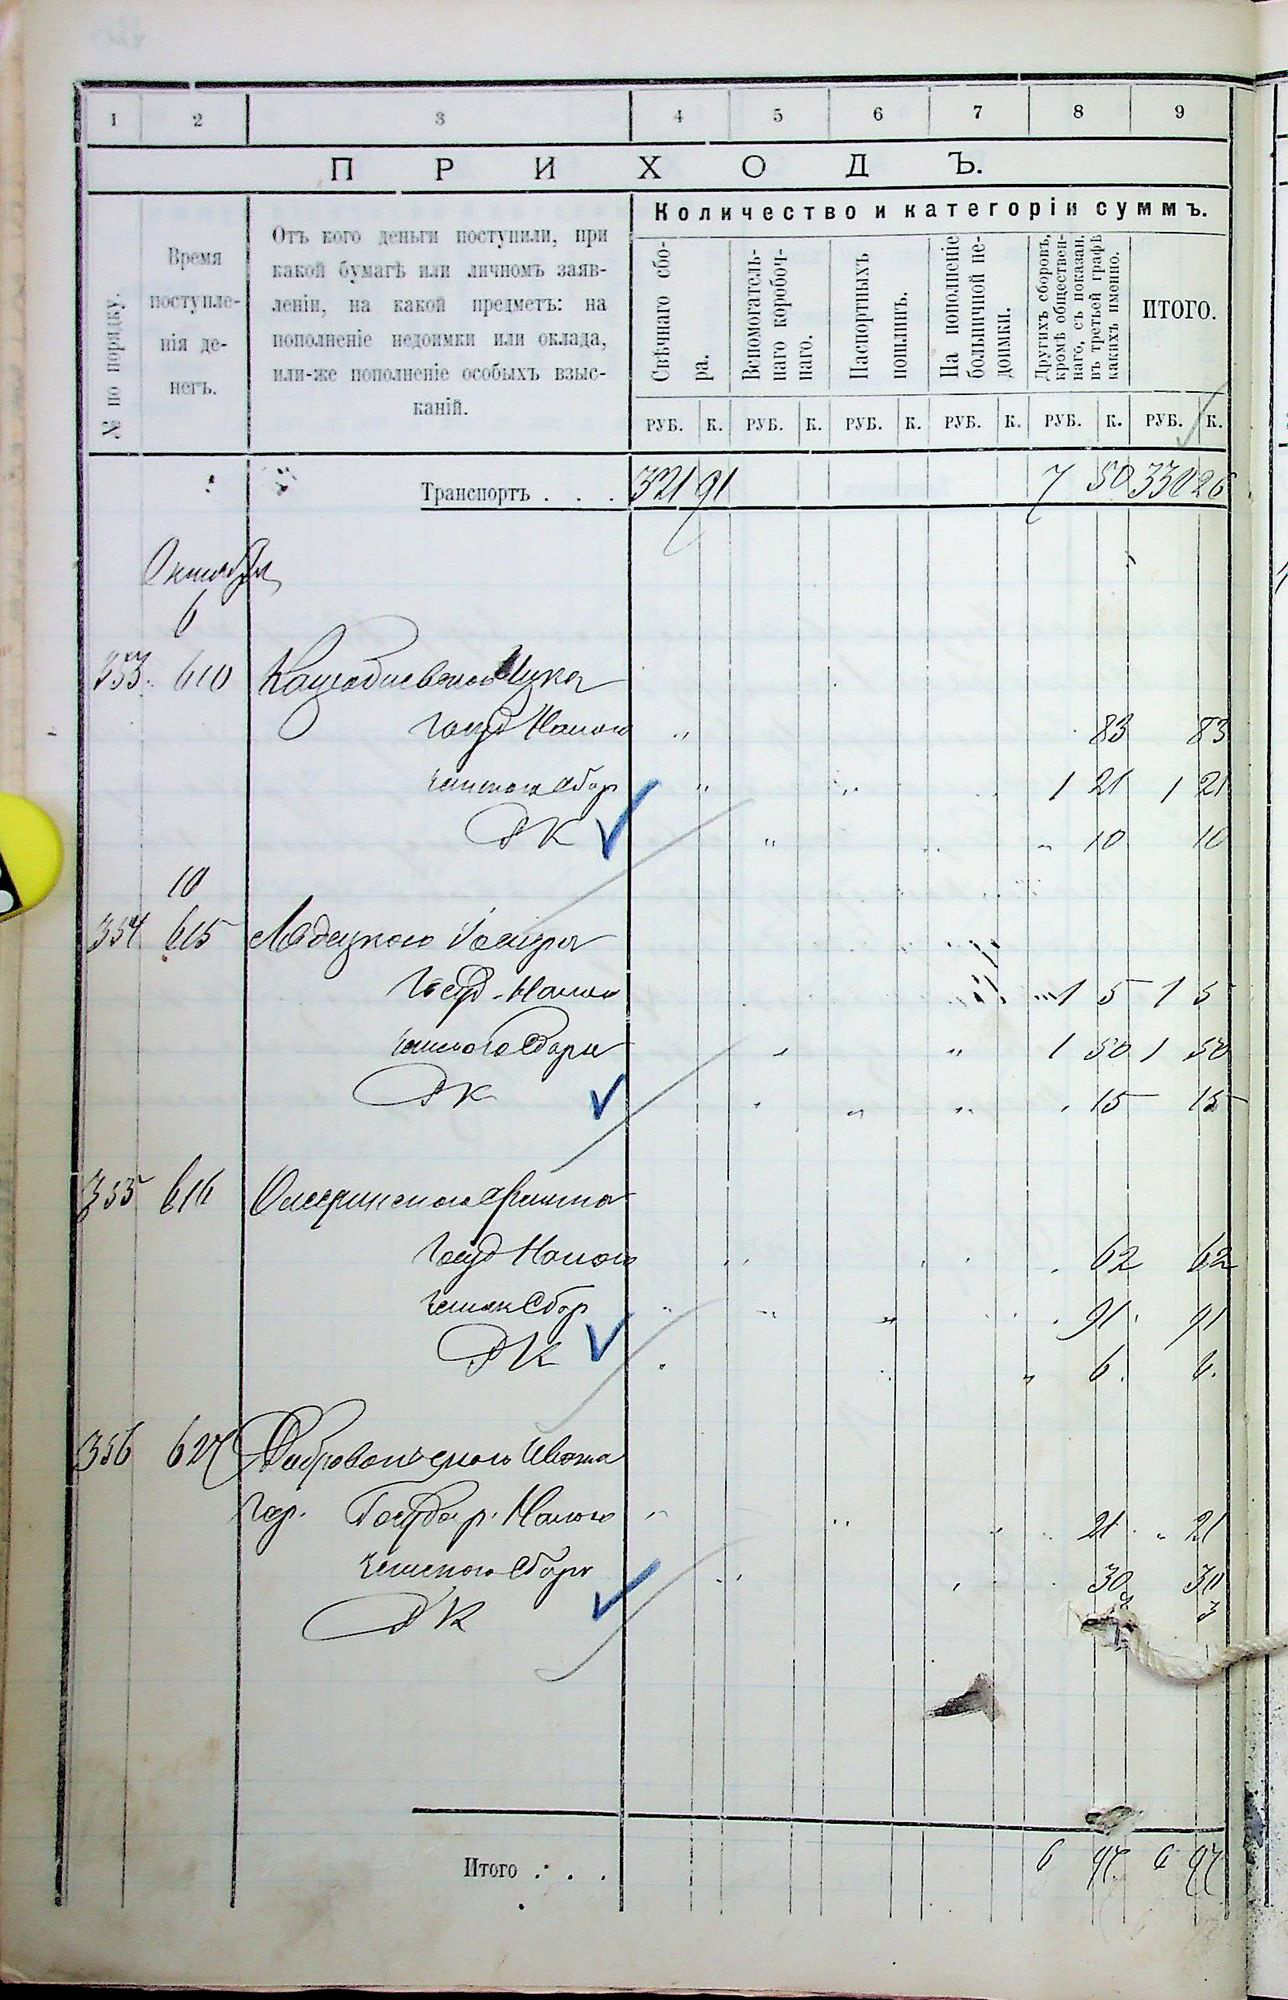 1 2 3 4 5 6 7 8 9
ПРИХОДЪ.
№ по порядку.
Время
поступле-
нія де-
негъ.
Отъ кого деньги поступили, при
какой бумагѣ или личномъ заяв-
леніи, на какой предметъ: на
пополненіе недоимки или оклада,
или-же пополненіе особыхъ взыс-
каній.
Количество и категоріи суммъ.
Свѣчнаго сбо-
ра.
Вспомогатель-
наго коробоч-
наго.
Паспортныхъ
пошлинъ.
На пополненіе
больничной не-
доимки.
Другихъ сборовъ,
кромѣ обществен-
наго, съ показан.
въ третьей графѣ
какихъ именно.
ИТОГО.
РУБ. К. РУБ. К. РУБ. К. РУБ. К. РУБ. К. РУБ. К.
Транспортъ . . . 321 91 7 50 330 26
Октября
6
353 610
Госуд Налога 83 83
земского сбор 1 21 1 21
ДК 10 10
10
354 615
Госуд. Налога 1 5 1 5
земского Сбора 1 50 1 50
ДК 15 15
355 616
Госуд Налога 62 62
земск Сбор 91 91
ДК 6 6.
356 627
Государ. Налога 21 21
земского Сбора 30 30
ДК 3
Итого . . . 6 97 6 97